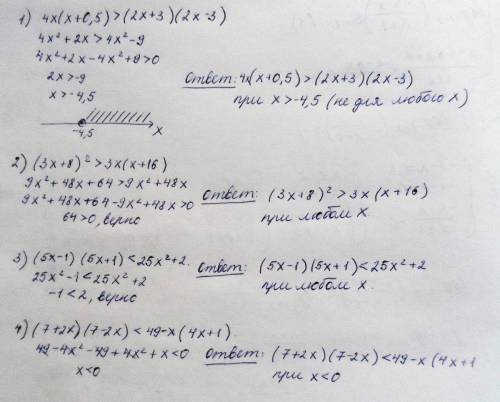 1) 4x(x+0,5)>(2x+3)(2x-3)
4x²+2x>4x²-9
4x²+2x-4x²+9>0
2x>-9
x>-4,5
-4,5 x
Ответ: 4x(x+0,5)>(2x+3)(2x-3)
при x>-4,5 (не для любого x)
2) (3x+8)²>3x(x+16)
9x²+48x+64>9x²+48x
9x²+48x+64-9x²+48x>0
64>0, верно
Ответ: (3x+8)²>3x(x+16)
при любом x.
3) (5x-1)(5x+1)<25x²+2.
25x²-1<25x²+2
-1<2, верно
Ответ: (5x-1)(5x+1)<25x²+2
при любом x.
4) (7+2x)(7-2x)<49-x(4x+1)
49-4x²-49+4x²+x<0
x<0
Ответ: (7+2x)(7-2x)<49-x(4x+1
при x<0